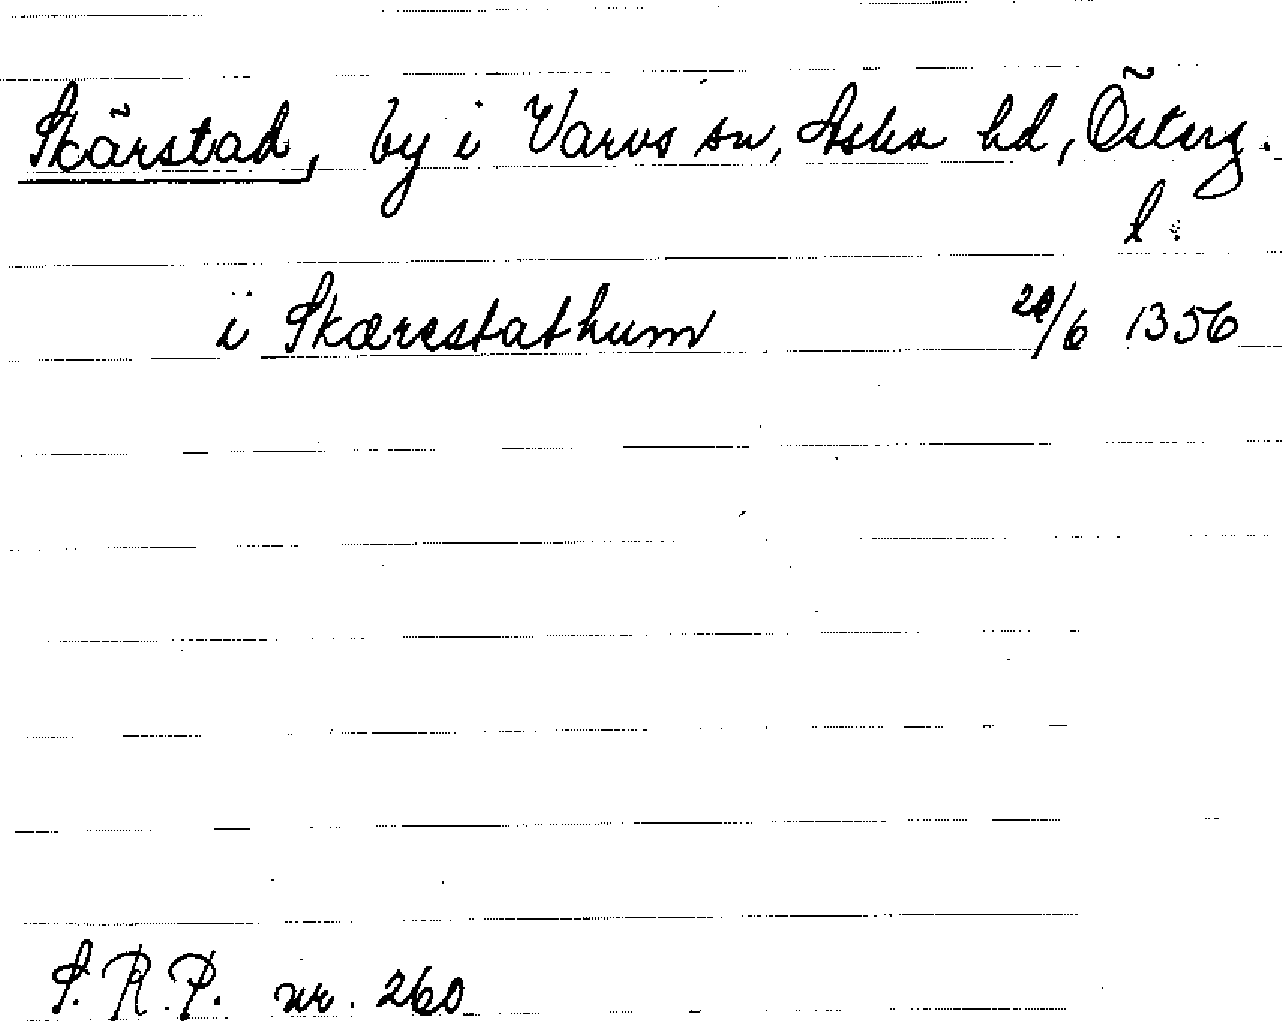 Skärstad, by i Varvs sn, Aska hd, Österg.
l.
i Skærestathum 20/6 1356
S.R.P. nr. 260